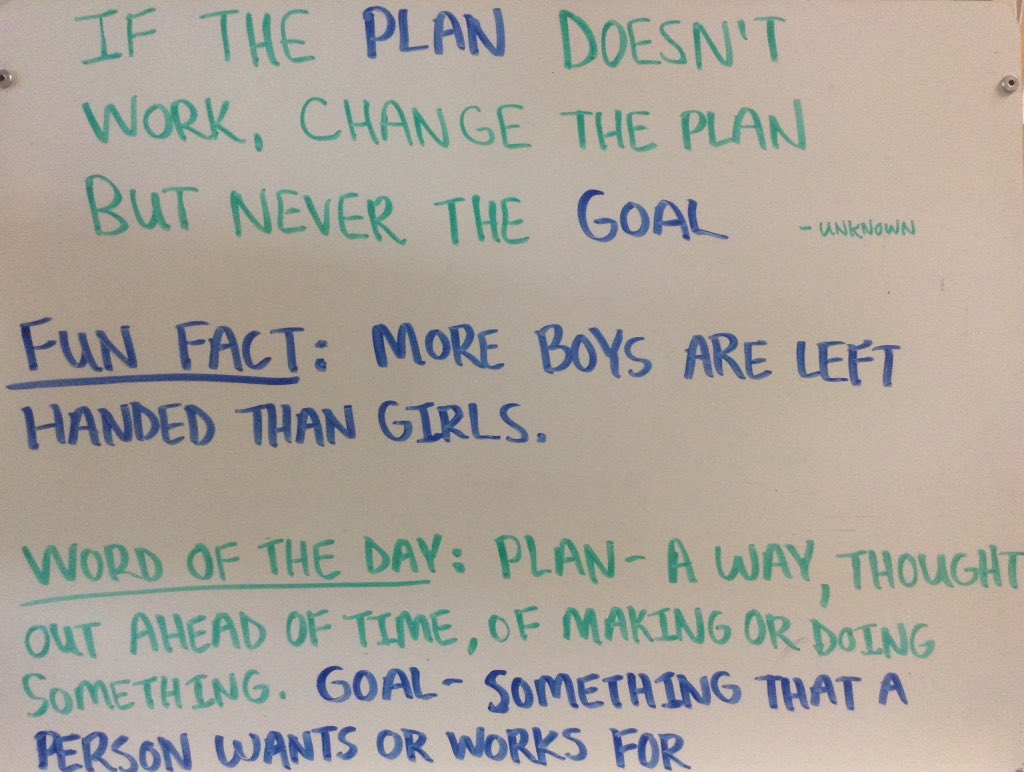 IF THE PLAN DOESN'T
WORK, CHANGE THE PLAN
BUT NEVER THE GOAL - UNKNOWN
FUN FACT: MORE BOYS ARE LEFT
HANDED THAN GIRLS.
WORD OF THE DAY: PLAN- A WAY, THOUGHT
OUT AHEAD OF TIME, OF MAKING OR DOING
SOMETHING. GOAL- SOMETHING THAT A
PERSON WANTS OR WORKS FOR